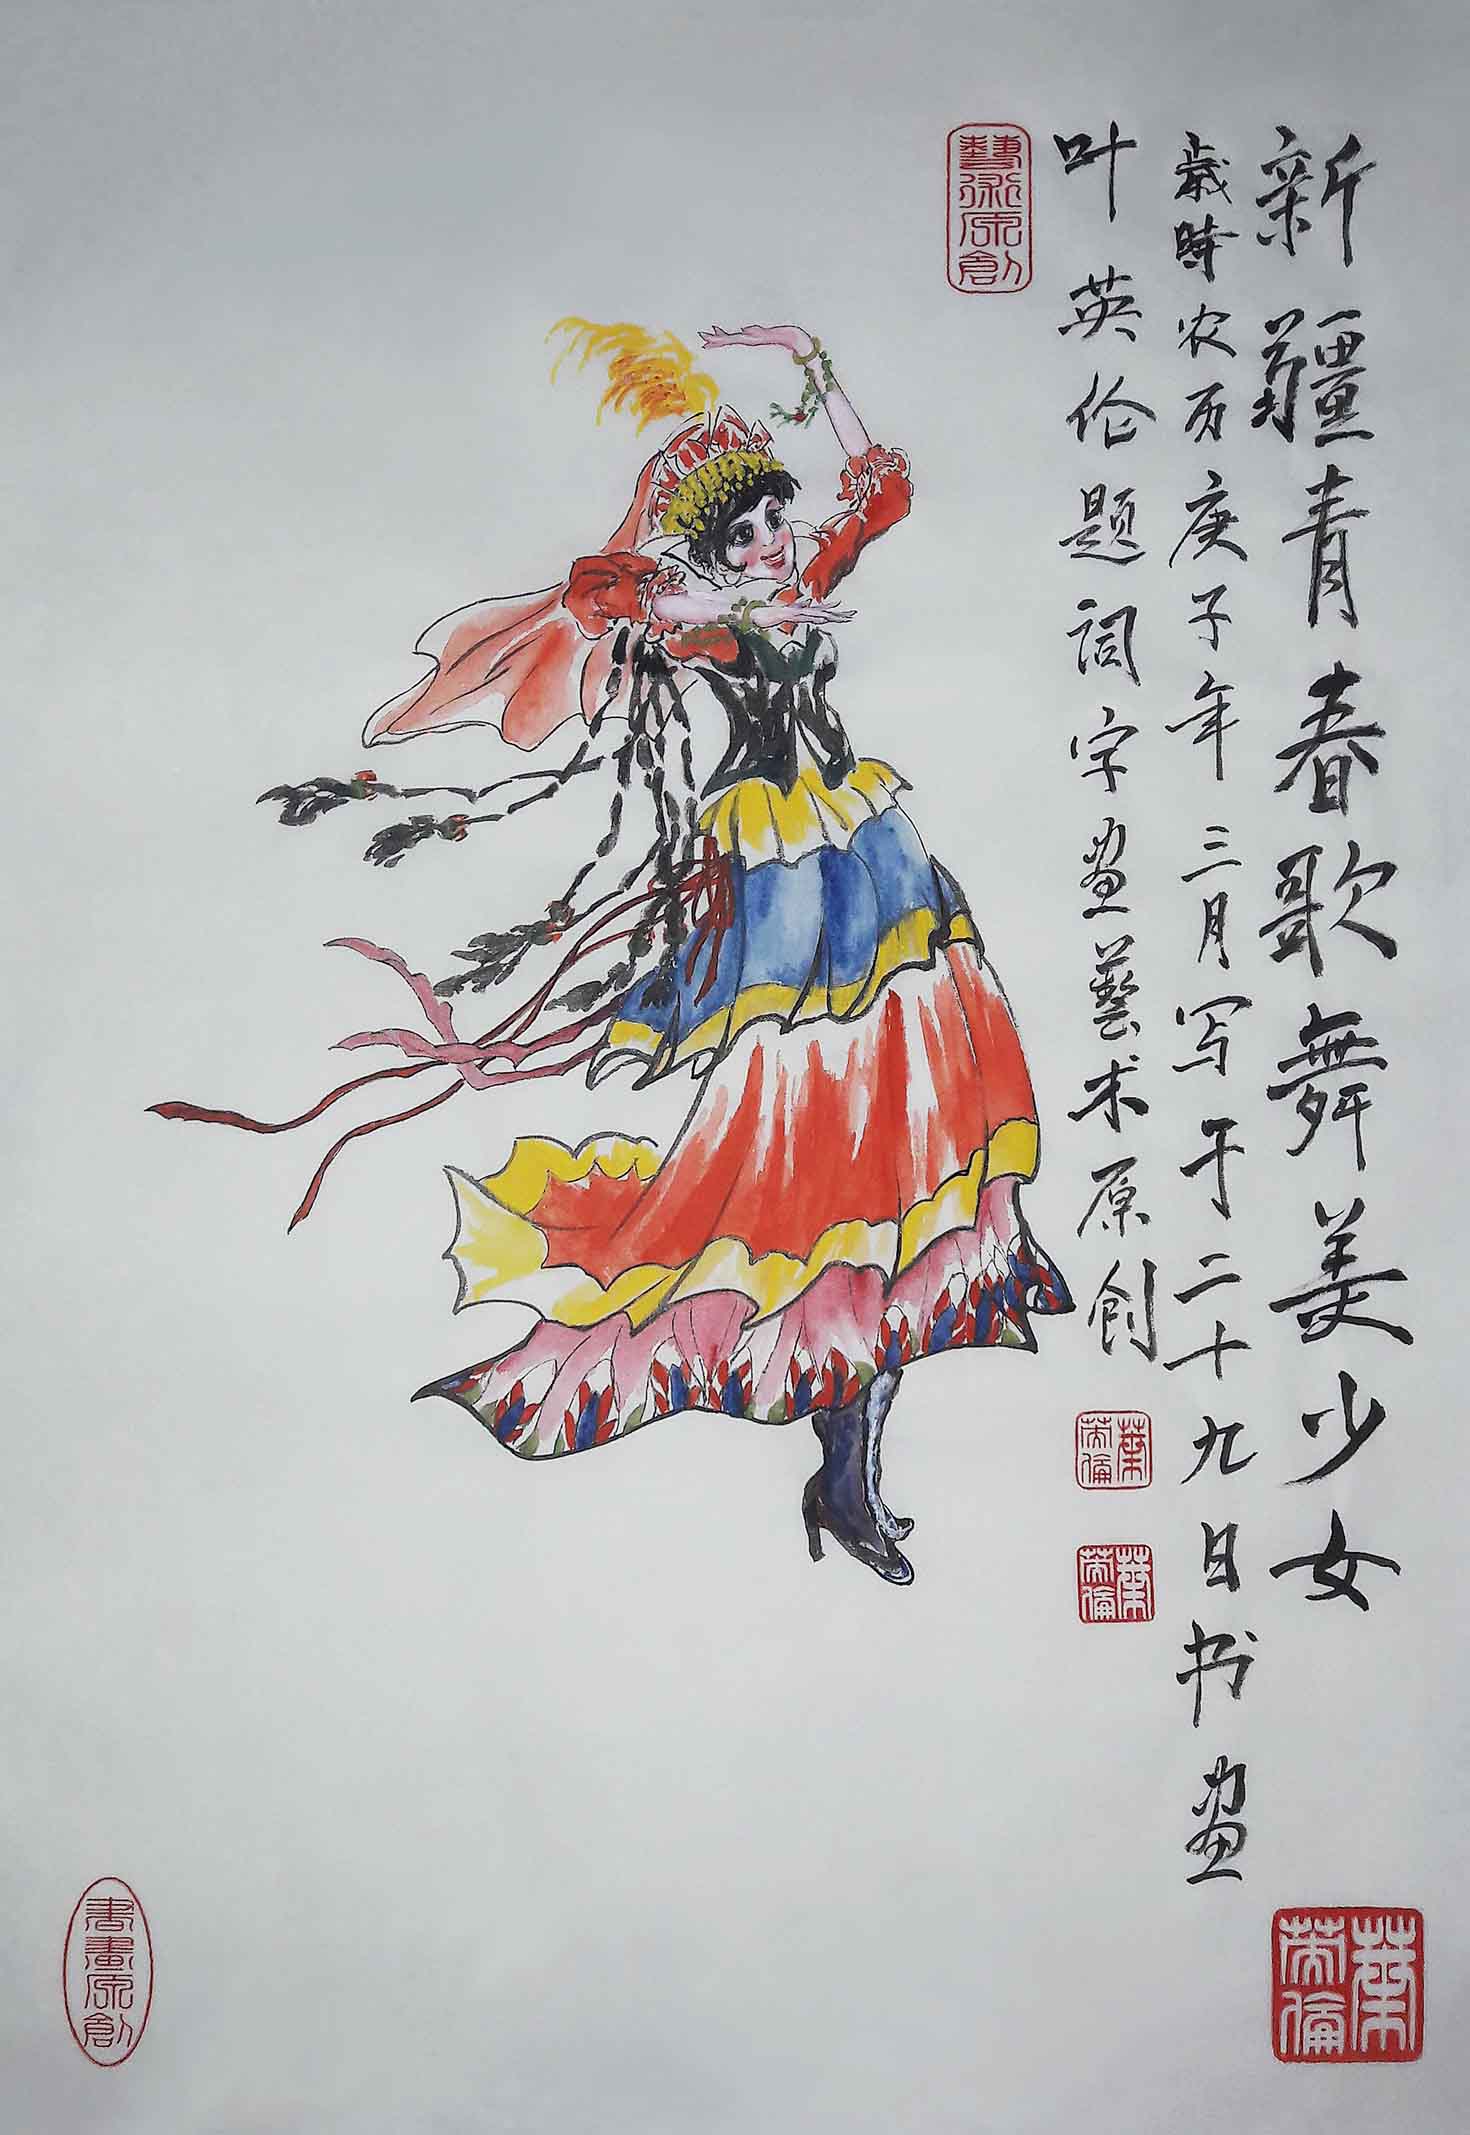 新疆青春歌舞美少女
歲時农历庚子年三月写于二十九日书画
叶英伦题词字画藝术原创
藝術原創
葉英倫
葉英倫
葉英倫
書畫原創